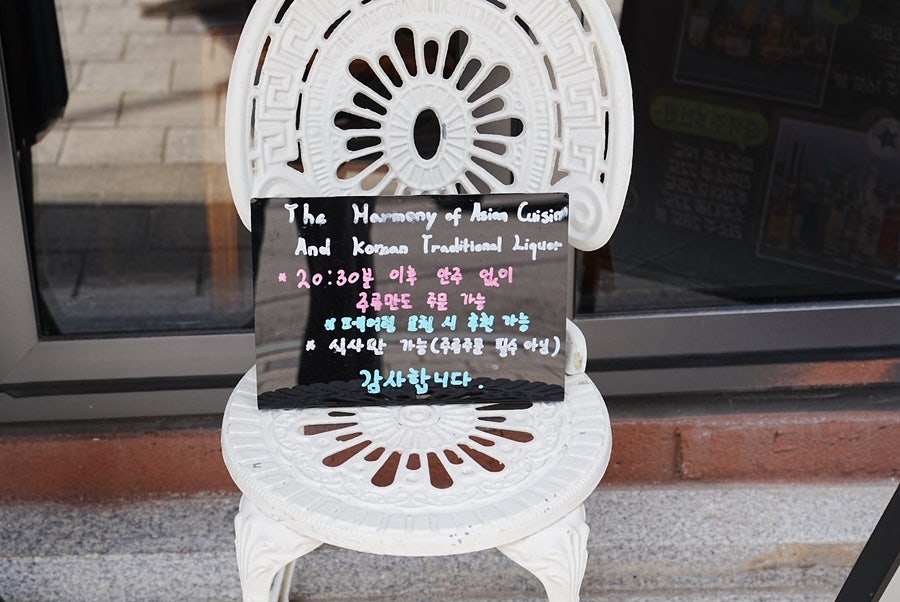 The Harmony of Asian Cuisin
And Korean Traditional Liquor
* 20:30분 이후 안주 없이
주류만도 주문 가능
* 페어링 요청 시 추천 가능
* 식사만 가능(주류주문 필수 아님)
감사합니다.